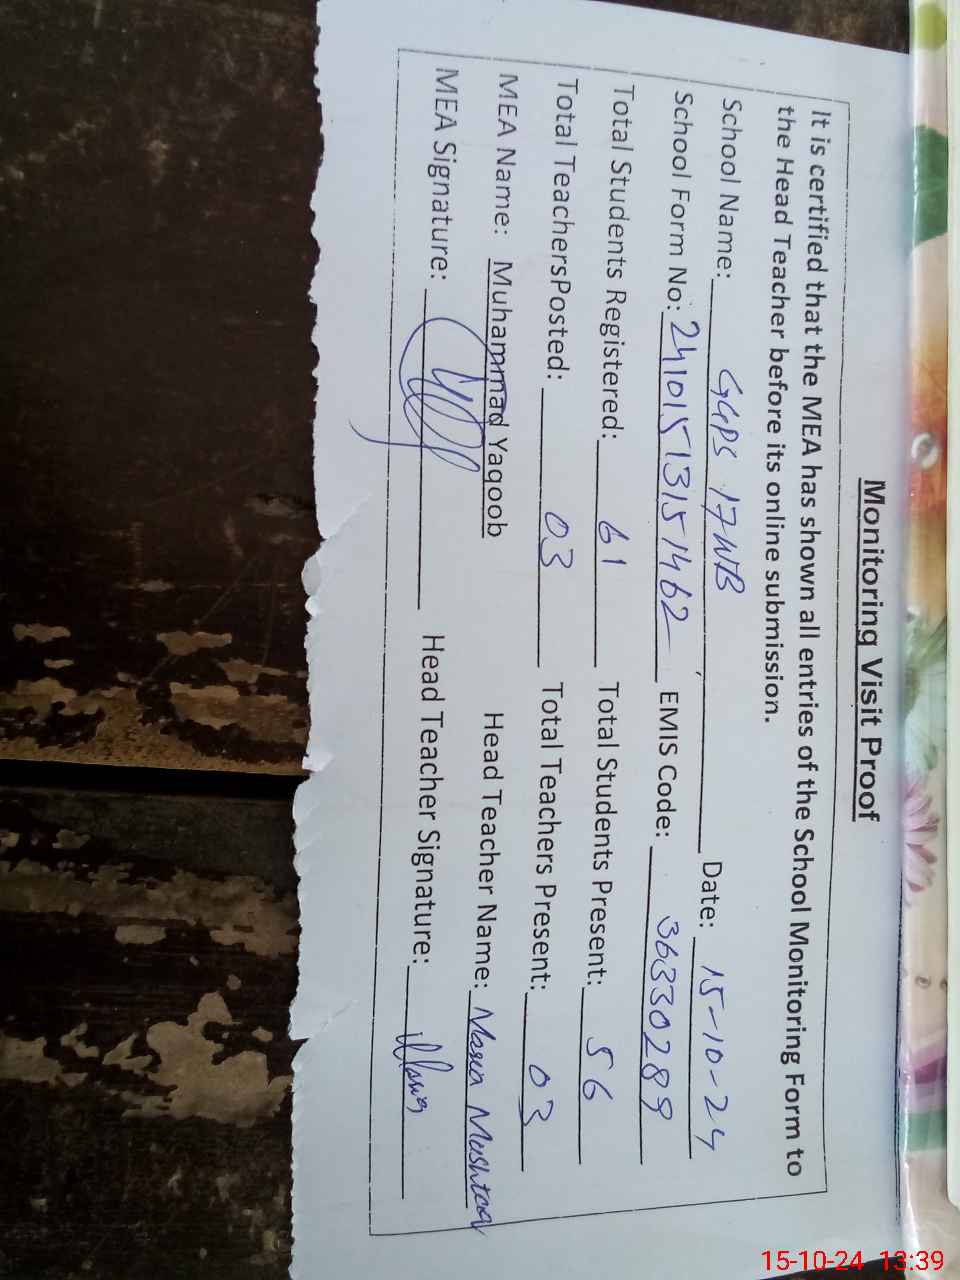 Monitoring Visit Proof
It is certified that the MEA has shown all entries of the School Monitoring Form to
the Head Teacher before its online submission.
School Name: GGPS 17WB Date: 15-10-24
School Form No: 24101513151462 EMIS Code: 36330289
Total Students Registered: 61 Total Students Present: 56
Total TeachersPosted: 03 Total Teachers Present: 03
MEA Name: Muhammad Yaqoob Head Teacher Name: Maria Mushtaq
MEA Signature: Head Teacher Signature: Maria
15-10-24 13:39